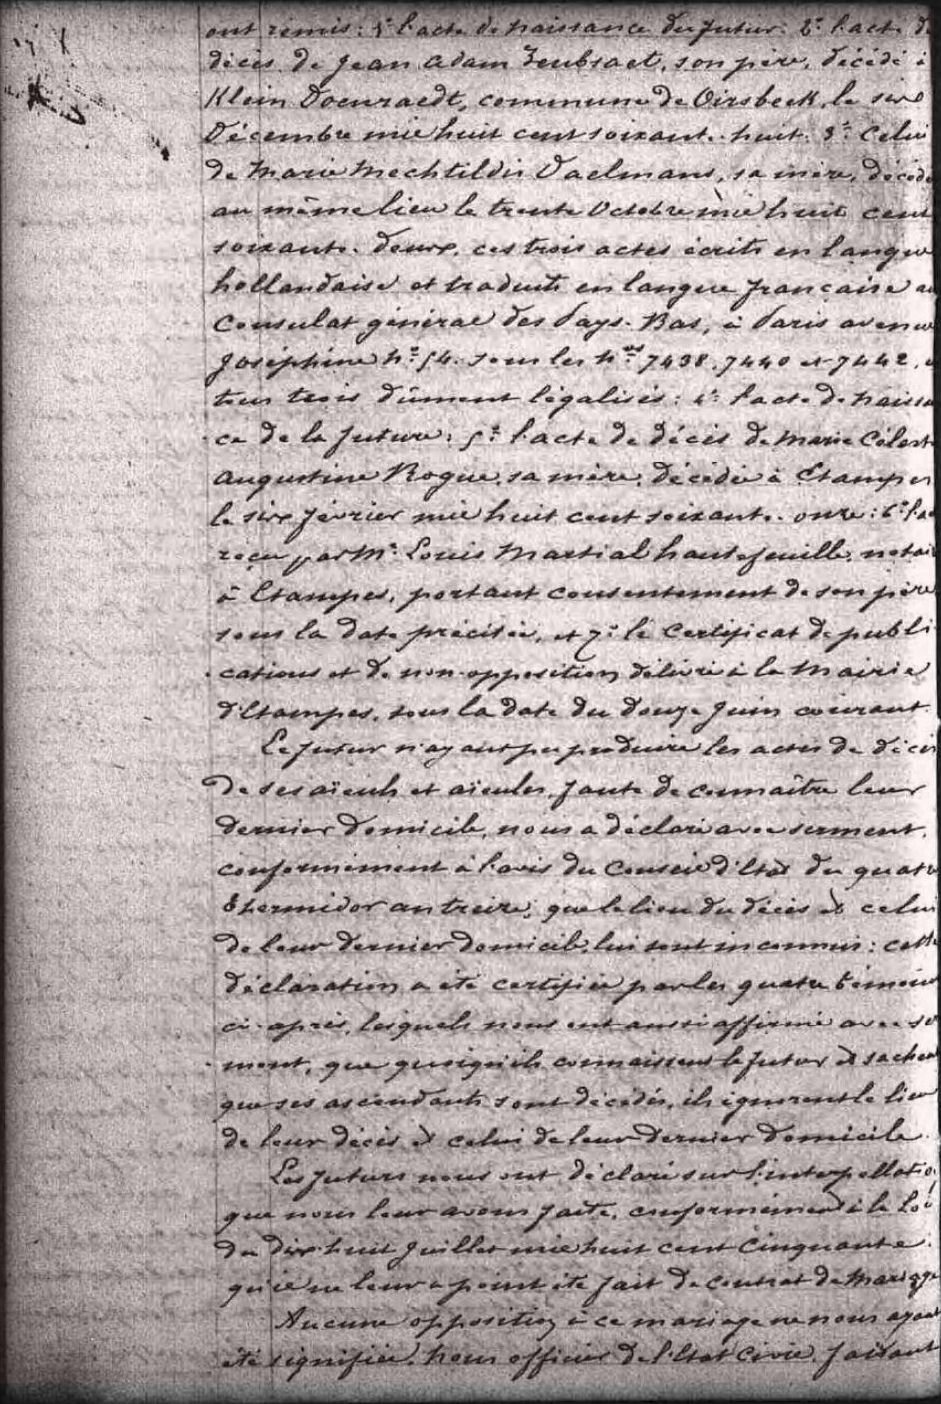 ont remis: 1° l'acte de naissance du futur. 2° l'acte de
décès de Jean Adam, son père, décédé à
Klein Doenraedt, commune de Oirsbeek, le six
Décembre mil huit cent soixante-huit. 3° Celui
de Marie Mechtildis Vaelmans, sa mère, décédée
au même lieu le trente Octobre mil huit cent
soixante-deux, ces trois actes écrits en langue
hollandaise et traduits en langue française au
Consulat général des Pays-Bas, à Paris avenue
Joséphine N° 54. sous les Nos 7438, 7440 et 7442, et
tous trois dûment légalisés: 4° l'acte de naissan
ce de la future; 5° l'acte de décès de Marie Céleste
Augustine Rogue, sa mère, décédée à Étampes
le six février mil huit cent soixante-onze: 6° l'acte
reçu par Me Louis Martial hautefeuille, notaire
à Etampes, portant consentement de son père
sous la date précitée, et 7° le Certificat de publi
cations et de non-opposition délivré à la Mairie
d'Etampes, sous la date du douze Juin courant.
Le futur n'ayant pu produire les actes de décès
de ses aïeuls et aïeules, faute de connaître leur
dernier domicile, nous a déclaré avec serment,
conformément à l'avis du Conseil d'Etat du quatre
thermidor an treize, que le lieu du décès et celui
de leur dernier domicile lui sont inconnus: cette
déclaration a été certifiée par les quatre témoins
ci-après, lesquels nous ont aussi affirmé avec ser
ment, que quoiqu'ils connaissent le futur et sachent
que ses ascendants sont décédés, ils ignorent le lieu
de leur décès et celui de leur dernier domicile.
Les futurs nous ont déclaré sur l'interpellation
que nous leur avons faite, conformément à la Loi
du dix-huit Juillet mil huit cent cinquante.
qu'il ne leur a point été fait de contrat de mariage
Aucune opposition à ce mariage ne nous ayant
été signifiée, Nous officier de l'Etat Civil, faisant